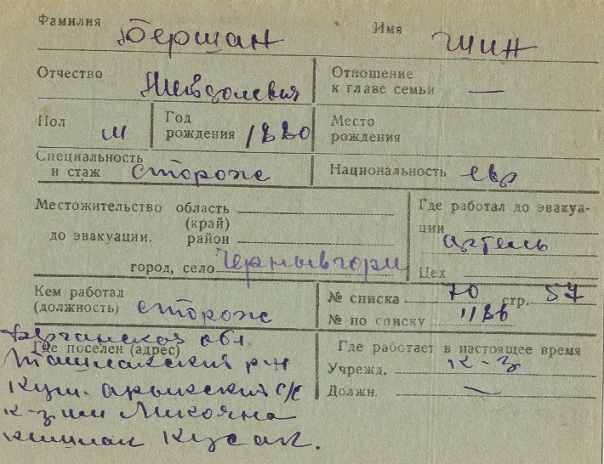 Фамилия Бершан Имя Шин
Отчество
Отношение
к главе семьи —
Пол м Год
рождения 1880 Место
рождения
Специальность
и стаж сторож Национальность евр
Местожительство область
(край)
до эвакуации. район
город, село Чернывгори
Где работал до эвакуа-
ции
артель
Цех
Кем работал
(должность) сторож
№ списка 70 стр. 57
№ по списку 1186
Ферганская обл.
Где поселен (адрес)
Ташлакский р-н
Куш. арыкский с/с
к-з им Микояна
кишлак Кусак.
Где работает в настоящее время
Учрежд. к-з
Должн. —